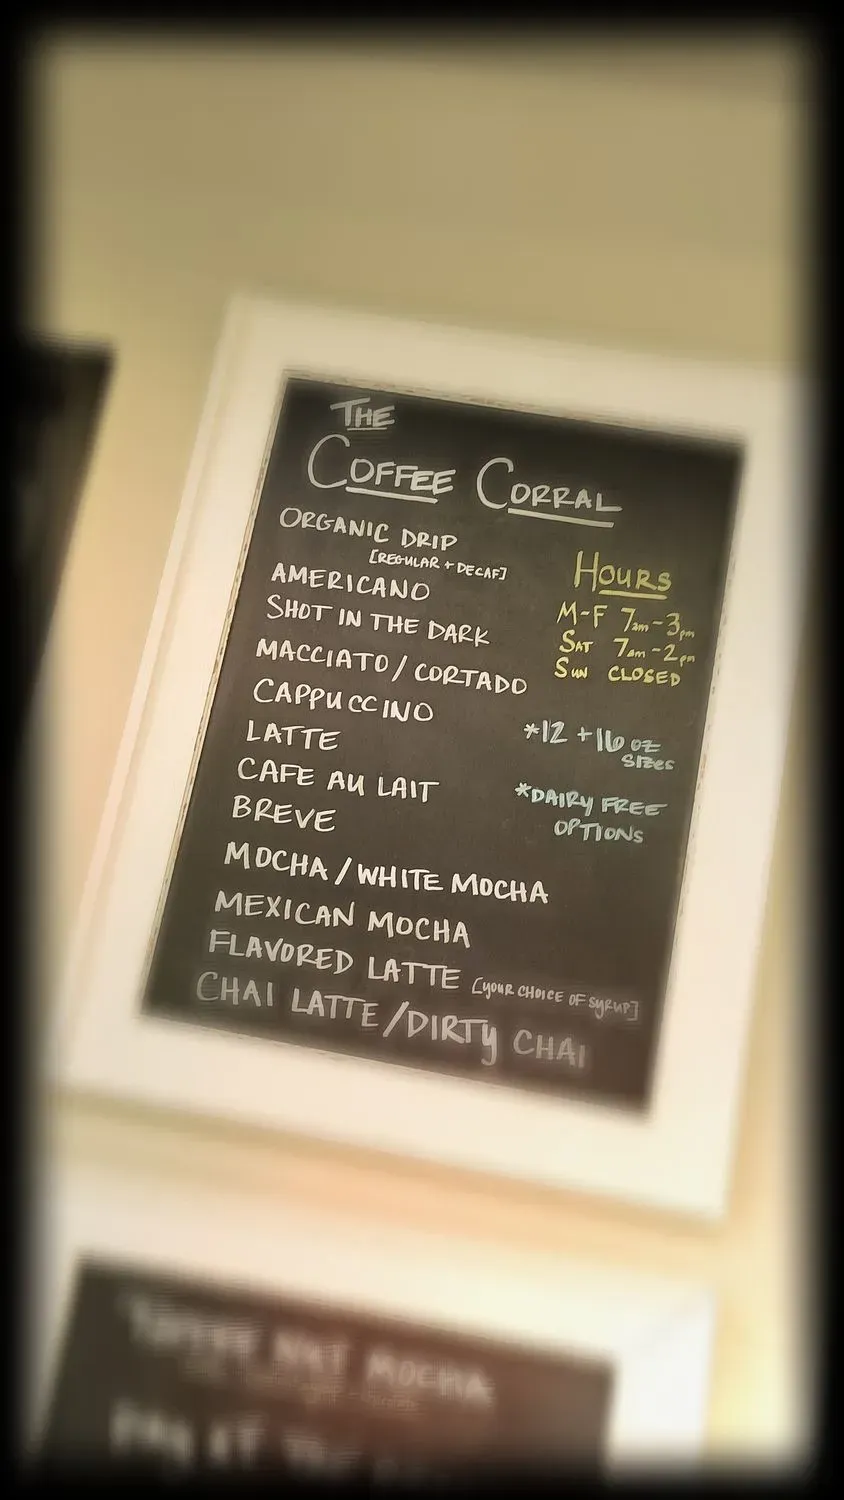 THE
COFFEE CORRAL
ORGANIC DRIP
[REGULAR + DECAF]
AMERICANO
SHOT IN THE DARK
MACCIATO / CORTADO
CAPPUCCINO
LATTE
CAFE AU LAIT
BREVE
MOCHA / WHITE MOCHA
MEXICAN MOCHA
FLAVORED LATTE [YOUR CHOICE OF SYRUP]
CHAI LATTE / DIRTY CHAI
HOURS
M-F 7am-3pm
SAT 7am-2pm
SUN CLOSED
*12 + 16 oz
SIZES
*DAIRY FREE
OPTIONS
MOCHA